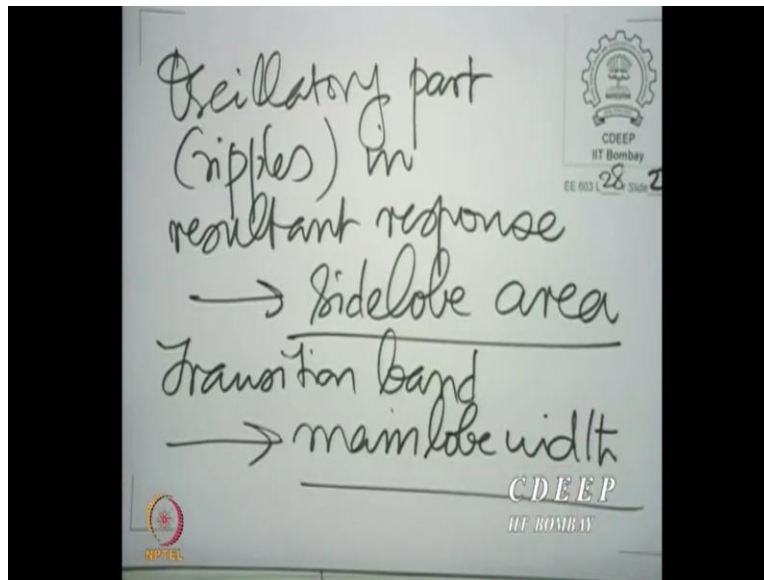 Oscillatory part
(ripples) in
resultant response
→ Sidelobe area
Transition band
→ mainlobe width
CDEEP
IIT Bombay
EE 603 L 28 / Slide 2
CDEEP
IIT BOMBAY
NPTEL